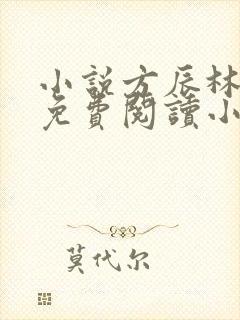 小說方辰林
免費閱讀小
莫代尔